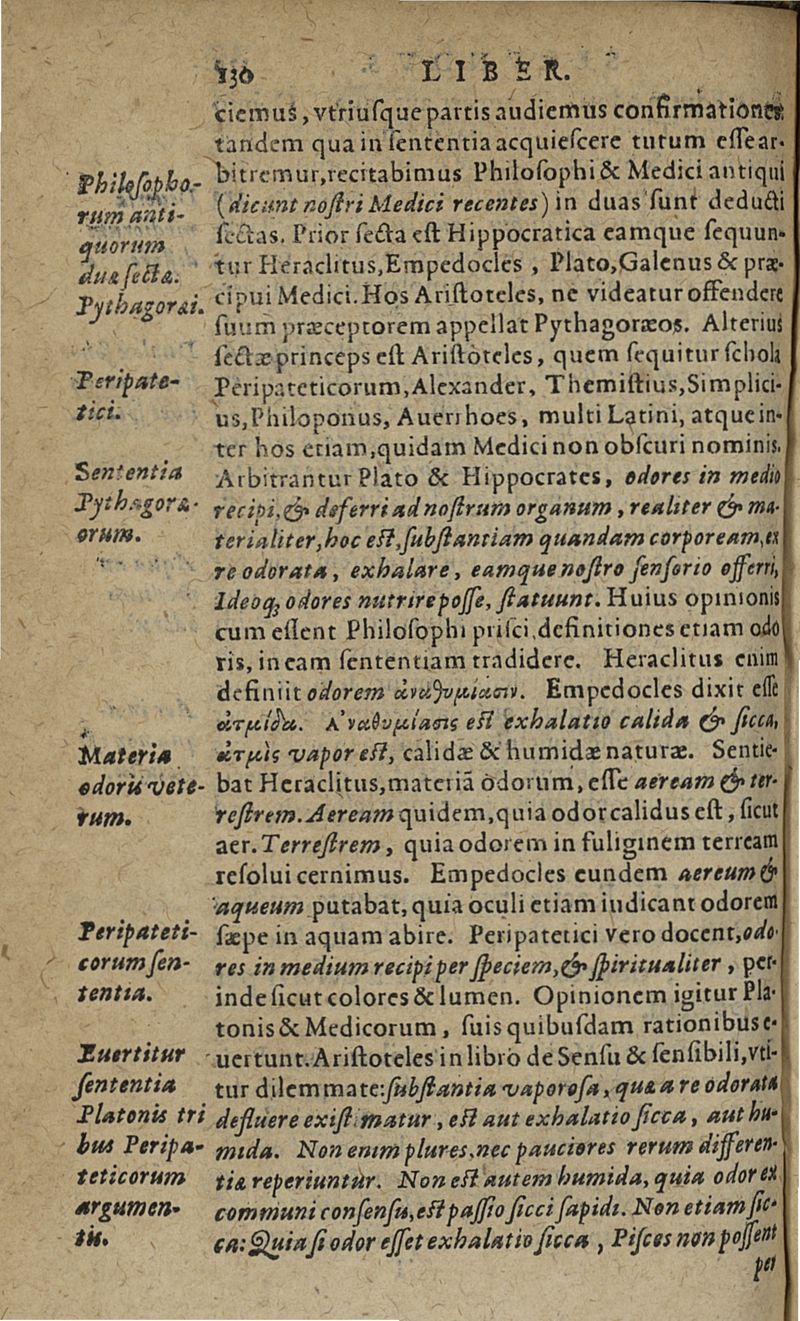 130 LIBER.
ciemus, vtriuſque partis audiemus confirmationes
tandem qua in ſententia acquieſcere tutum eſſe ar-
bitremur, recitabimus Philoſophi & Medici antiqui
(dicunt noſtri Medici recentes) in duas ſunt deducti
ſectas. Prior ſecta eſt Hippocratica eamque ſequun-
tur Heraclitus, Empedocles, Plato, Galenus & præ-
cipui Medici. Hos Ariſtoteles, ne videatur offendere
ſuum præceptorem appellat Pythagoræos. Alterius
ſectæ princeps eſt Ariſtoteles, quem ſequitur ſchola
Peripateticorum, Alexander, Themiſtius, Simplici-
us, Philoponus, Auerrhoes, multi Latini, atque in-
ter hos etiam, quidam Medici non obſcuri nominis.
Arbitrantur Plato & Hippocrates, odores in medio
recipi, & deferri ad noſtrum organum, realiter & ma-
terialiter, hoc eſt, ſubſtantiam quandam corpoream, ex
re odorata, exhalare, eamque noſtro ſenſorio offerri,
Ideoq; odores nutrire poſſe, ſtatuunt. Huius opinionis
cum eſſent Philoſophi priſci, definitiones etiam odo
ris, in eam ſententiam tradidere. Heraclitus enim
definiit odorem ἀναθυμίασιν. Empedocles dixit eſſe
ἀτμίδα. Ἀναθυμίασις eſt exhalatio calida & ſicca,
ἀτμὶς vapor eſt, calidæ & humidæ naturæ. Sentie-
bat Heraclitus, materiã odorum, eſſe aeream & ter-
reſtrem. Aeream quidem, quia odor calidus eſt, ſicut
aer. Terreſtrem, quia odorem in fuliginem terream
reſolui cernimus. Empedocles eundem aereum &
aqueum putabat, quia oculi etiam iudicant odorem
ſæpe in aquam abire. Peripatetici vero docent, odo-
res in medium recipi per ſpeciem, & ſpiritualiter, per-
inde ſicut colores & lumen. Opinionem igitur Pla-
tonis & Medicorum, ſuis quibuſdam rationibus e-
uertunt. Ariſtoteles in libro de Senſu & ſenſibili, vti-
tur dilemmate: ſubſtantia vaporoſa, quæ a re odorata
defluere exiſtimatur, eſt aut exhalatio ſicca, aut hu-
mida. Non enim plures, nec pauciores rerum differen-
tiæ reperiuntur. Non eſt autem humida, quia odor ex
communi conſenſu, eſt paſſio ſicci ſapidi. Non etiam ſic-
ca: Quia ſi odor eſſet exhalatio ſicca, Piſces non poſſent
per
Philoſopho-
rum anti-
quorum
duæ ſectæ.
Pythagoræi.
Peripate-
tici.
Sententia
Pythagoræ-
orum.
Materia
odoris vete-
rum.
Peripateti-
corum ſen-
tentia.
Euertitur
ſententia
Platonis tri
bus Peripa-
teticorum
argumen-
tis.